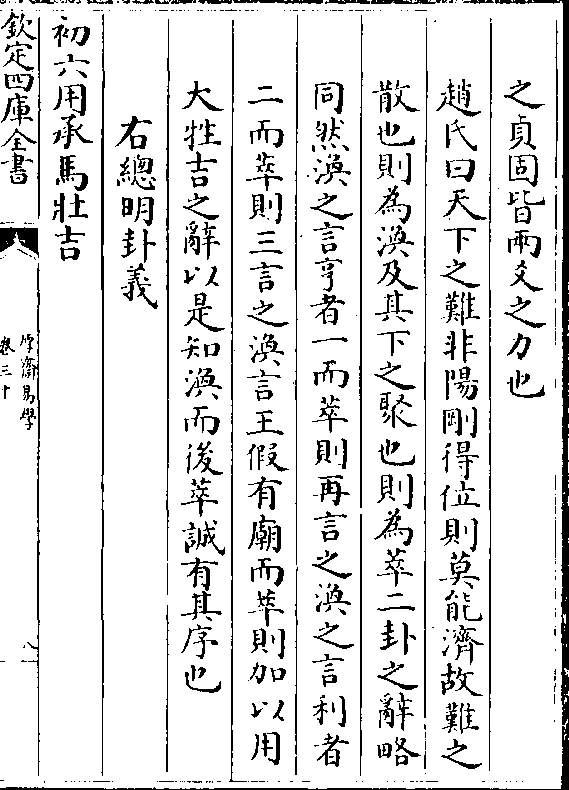 之貞固皆兩爻之力也
趙氏曰天下之難非陽剛得位則莫能濟故難之
散也則為渙及其下之聚也則為萃二卦之辭略
同然渙之言亨者一而萃則再言之渙之言利者
二而萃則三言之渙言王假有廟而萃則加以用
大牲吉之辭以是知渙而後萃誠有其序也
右總明卦義
初六用承馬壯吉
欽定四庫全書
厚齋易學
卷三十
八